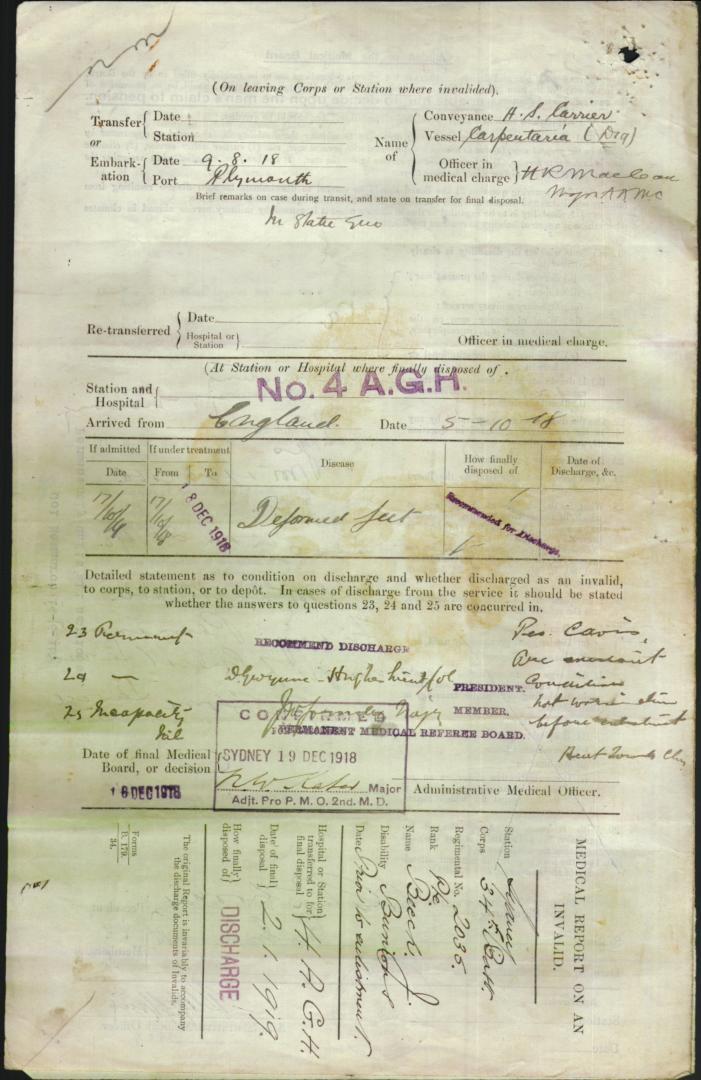 (On leaving Corps or Station where invalided).
Transfer Date
Station
or
Embark-
ation
Date 9.8.18
Port Plymouth
Name
of
Conveyance H.S. Carrier
Vessel Carpentaria (D29)
Officer in
medical charge
Brief remarks on case during transit, and state on transfer for final disposal.
In statu quo
Re-transferred
Date
Hospital or
Station
Officer in medical charge.
(At Station or Hospital where finally disposed of.
Station and
Hospital
No. 4 A.G.H.
Arrived from England. Date 5-10-18
If admitted If under treatment Disease How finally
disposed of Date of
Discharge, &c.
Date From To
17/10/18 17/10/18 18 DEC 1918 Deformed feet Recommended for Discharge.
Detailed statement as to condition on discharge and whether discharged as an invalid,
to corps, to station, or to depôt. In cases of discharge from the service it should be stated
whether the answers to questions 23, 24 and 25 are concurred in.
23 Permanent
RECOMMEND DISCHARGE
Pes. Cavus
24 —
PRESIDENT.
Condition
25 Incapacity
Nil
MEMBER.
before enlistment
CONFIRMED
PERMANENT MEDICAL REFEREE BOARD.
SYDNEY 19 DEC 1918
Major
Adjt. Pro P. M. O. 2nd. M. D.
Date of final Medical
Board, or decision
18 DEC 1918
Administrative Medical Officer.
MEDICAL REPORT ON AN
INVALID.
Station Sydney
Corps 34th Batt.
Regimental No. 2035.
Rank Pte
Name
Disability Bunions
Date Prior to enlistment.
Hospital or Station
transferred to for
final disposal
4 A.G.H.
Date of final
disposal
2.1.1919.
How finally
disposed of
DISCHARGE
The original Report is invariably to accompany
the discharge documents of Invalids.
Forms
B. 179.
34.